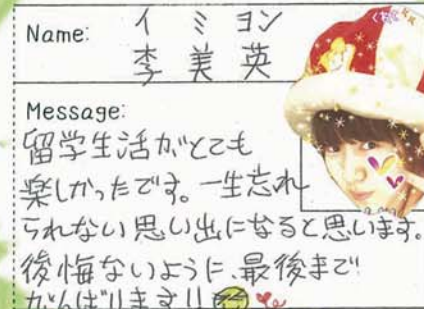 Name:
イ ミ ヨン
李 美 英
Message:
留学生活がとても
楽しかったです。一生忘れ
られない思い出になると思います。
後悔ないように、最後まで
がんばります!!